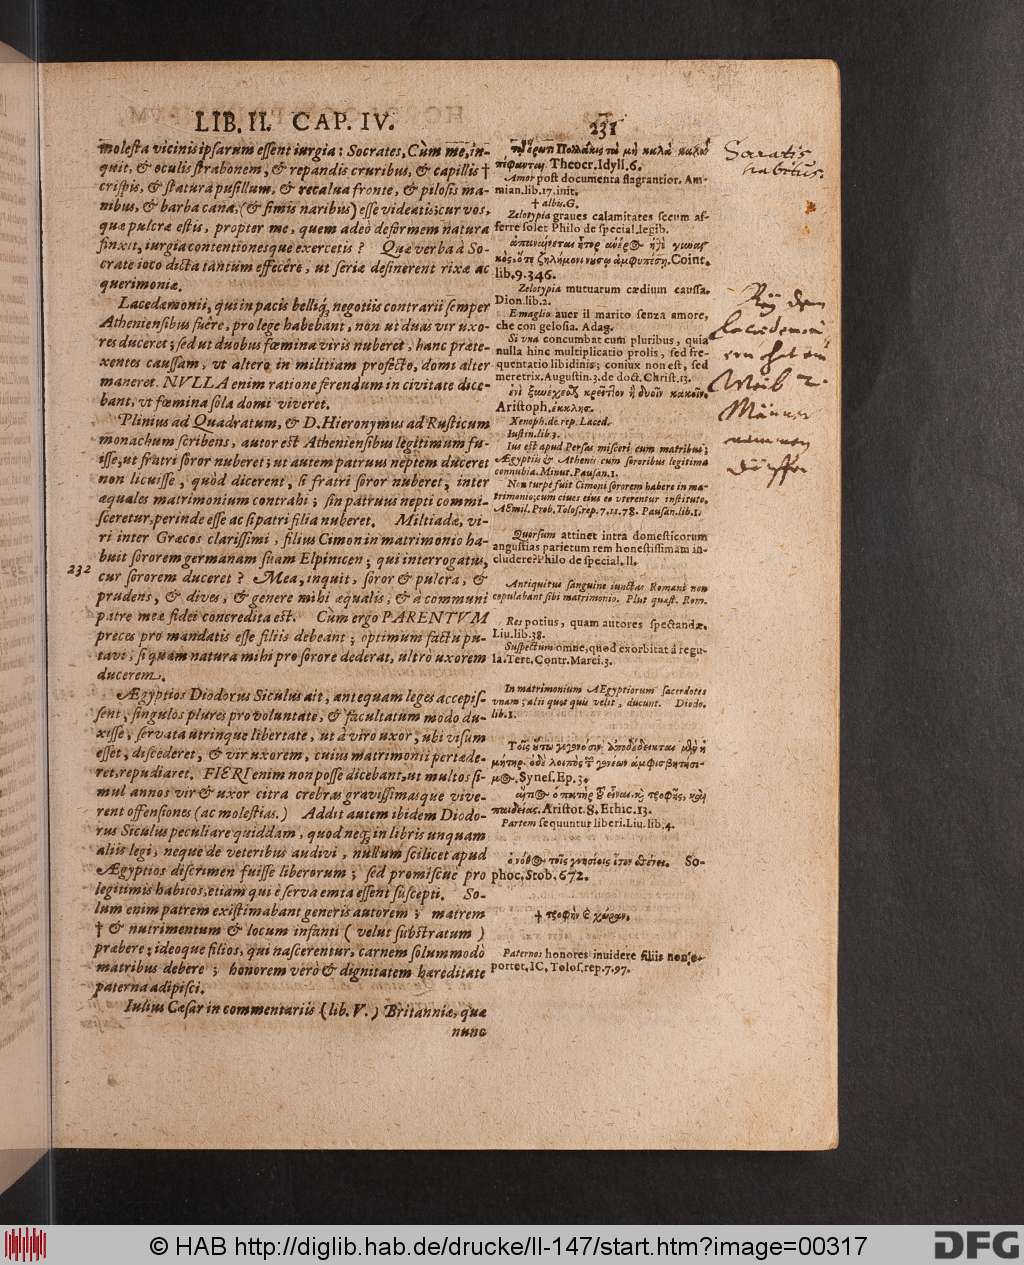 LIB. II. CAP. IV.
231
molesta vicinis ipsarum essent iurgia: Socrates, Cùm me, in-
quit, & oculis strabonem, & repandis cruribus, & capillis †
crispis, & staturâ pusillum, & recalua fronte, & pilosis ma-
nibus, & barba cana, (& simis naribus) esse videatis; cur vos,
quæ pulcræ estis, propter me, quem adeò deformem natura
finxit, iurgia contentionesque exercetis? Quæ verba à So-
crate ioco dicta tantum effecêre, ut seriæ desinerent rixæ ac
querimoniæ.
Lacedæmonii, qui in pacis belliq́; negotiis contrarii semper
Atheniensibus fuêre, pro lege habebant, non ut duas vir uxo-
res duceret; sed ut duobus fœmina viris nuberet, hanc præte-
xentes caussam, vt altero in militiam profecto, domi alter
maneret. NVLLA enim ratione ferendum in civitate dice-
bant, vt fœmina sola domi viveret.
Plinius ad Quadratum, & D. Hieronymus ad Rusticum
monachum scribens, autor est Atheniensibus legitimum fu-
isse, ut fratri soror nuberet; ut autem patruus neptem duceret
non licuisse, quòd dicerent, si fratri soror nuberet, inter
æquales matrimonium contrahi; sin patruus nepti commi-
sceretur, perinde esse ac si patri filia nuberet. Miltiadæ, vi-
ri inter Græcos clarissimi, filius Cimon in matrimonio ha-
buit sororem germanam suam Elpinicen; qui interrogatus,
232
cur sororem duceret? Mea, inquit, soror & pulcra, &
prudens, & dives, & genere mihi æqualis, & à communi
patre meæ fidei concredita est. Cùm ergo PARENTVM
preces pro mandatis esse filiis debeant; optimum factu pu-
tavi, si quam natura mihi pro sorore dederat, ultrò uxorem
ducerem.
Ægyptios Diodorus Siculus ait, antequam leges accepis-
sent, singulos plures pro voluntate, & facultatum modo du-
xisse, servata utrinque libertate, ut à viro uxor, ubi visum
esset, discederet, & vir uxorem, cuius matrimonii pertæde-
ret, repudiaret. FIERI enim non posse dicebant, ut multos si-
mul annos vir & uxor citra crebras gravissimasque vive-
rent offensiones (ac molestias.) Addit autem ibidem Diodo-
rus Siculus peculiare quiddam, quod neq́; in libris unquam
aliis legi, neque de veteribus audivi, nullum scilicet apud
Ægyptios discrimen fuisse liberorum; sed promiscue pro
legitimis habitos, etiam qui è serva emta essent suscepti. So-
lum enim patrem existimabant generis autorem; matrem
† & nutrimentum & locum infanti (velut substratum)
præbere; ideoque filios, qui nascerentur, carnem solummodò
matribus debere; honorem verò & dignitatem hæreditate
paterna adipisci.
Iulius Cæsar in commentariis (lib. V.) Britanniæ, quæ
nunc
ἔρωτι Πολλάκις τὰ μὴ καλὰ καλὰ
πέφανται. Theocr. Idyll. 6.
Amor post documenta flagrantior. Am-
mian. lib. 17. init.
† albu. G.
Zelotypia graues calamitates secum af-
ferre solet Philo de special. legib.
Coint.
lib. 9. 346.
Zelotypia mutuarum cædium caussa.
Dion. lib. 2.
E maglio auer il marito senza amore,
che con gelosia. Adag.
Si vna concumbat cum pluribus, quia
nulla hinc multiplicatio prolis, sed fre-
quentatio libidinis; coniux non est, sed
meretrix. Augustin. 3. de doct. Christ. 13.
Aristoph. ἐκκλησ.
Xenoph. de rep. Laced.
Iustin. lib. 3.
Ius est apud Persas misceri cum matribus;
Ægyptiis & Athenis cum sororibus legitima
connubia. Minut. Pausan. 1.
Non turpe fuit Cimoni sororem habere in ma-
trimonio; cum ciues eius eo vterentur instituto.
AEmil. Prob. Tolos. rep. 7. 11. 78. Pausan. lib. 1.
Quorsum attinet intra domesticorum
angustias parietum rem honestissimam in-
cludere? Philo de special. ll.
Antiquitus sanguine iunctas Romani non
copulabant sibi matrimonio. Plut quæst. Rom.
Res potius, quam autores spectandæ.
Liu. lib. 38.
Suspectum omne, quod exorbitat à regu-
la. Tert. Contr. Marci. 3.
In matrimonium AEgyptiorum sacerdotes
vnam; alii quot quis velit, ducunt. Diodo.
lib. 1.
μήτηρ.
Synes. Ep. 3.
παιδείας. Aristot. 8. Ethic. 13.
Partem sequuntur liberi. Liu. lib. 4.
ὁ νόθος τοῖς γνησίοις ἴσον σθένει. So-
phoc. Stob. 672.
† τροφὴν & χώραν.
Paternos honores inuidere filiis non o-
portet, IC. Tolos. rep. 7. 97.
Socratis
habitus.
Bÿ den
Lacedemoni
ern hat ein
Weib 2
Männer
nemmen
dörffen
© HAB http://diglib.hab.de/drucke/ll-147/start.htm?image=00317
DFG